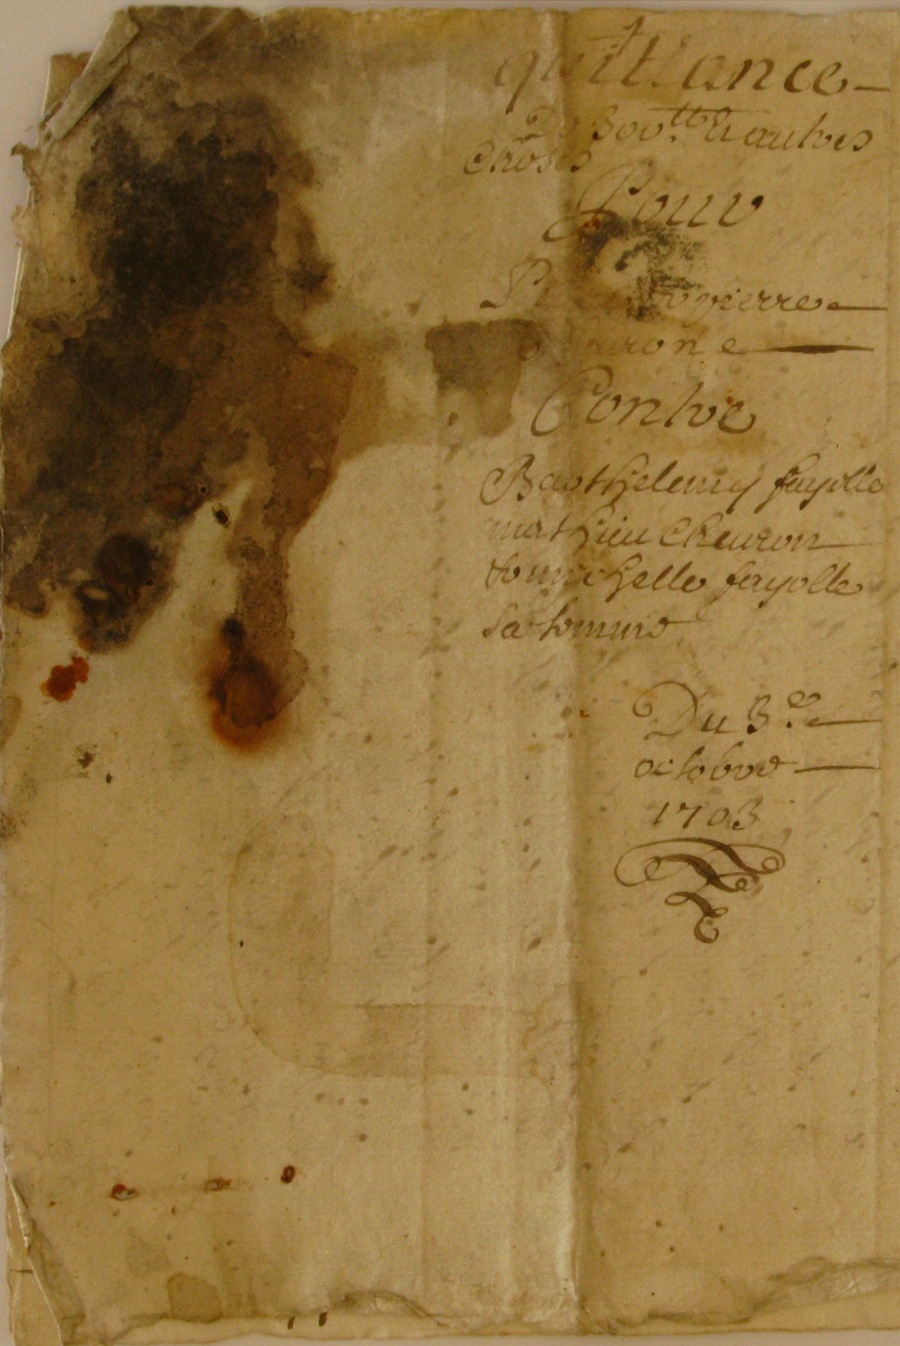 quittance
De 300 ₶ Et autres
Choses
Pour
pierre
Contre
Barthelemy fayolle
mathieu Cheuron
Et michelle fayolle
sa femme
Du 3e
octobre
1703